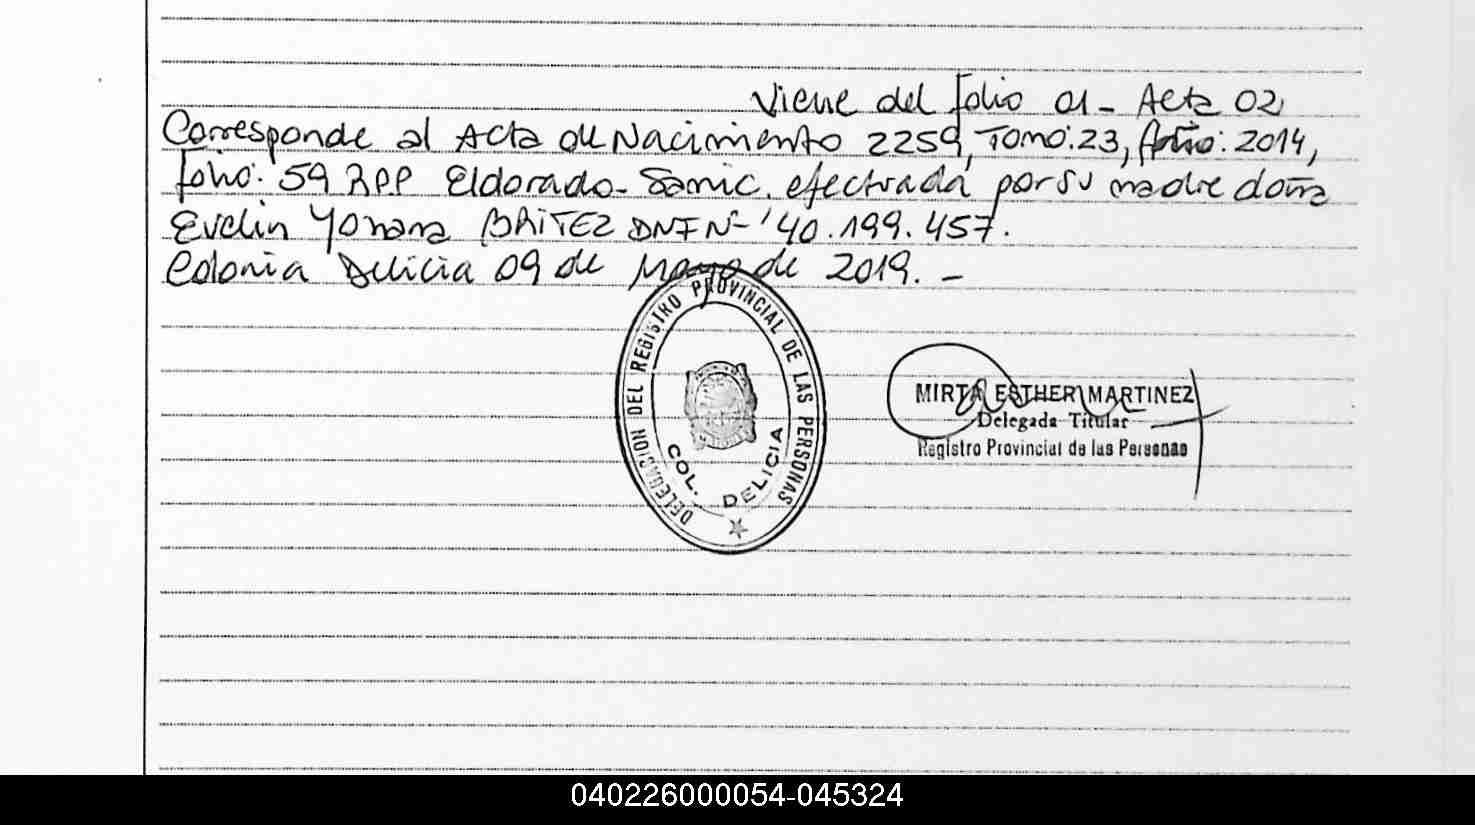 Viene del folio 01 - Acta 02
Corresponde al Acta de Nacimiento 2259, Tomo: 23, Año: 2014,
folio: 59 RPP Eldorado - Samic. efectuada por su madre doña
Evelin Yohana BRITEZ DNI Nº 40.199.457.
Colonia Delicia 09 de Mayo de 2019. -
DELEGACION DEL REGISTRO PROVINCIAL DE LAS PERSONAS
COL. DELICIA
MIRTA ESTHER MARTINEZ
Delegada Titular
Registro Provincial de las Personas
040226000054-045324